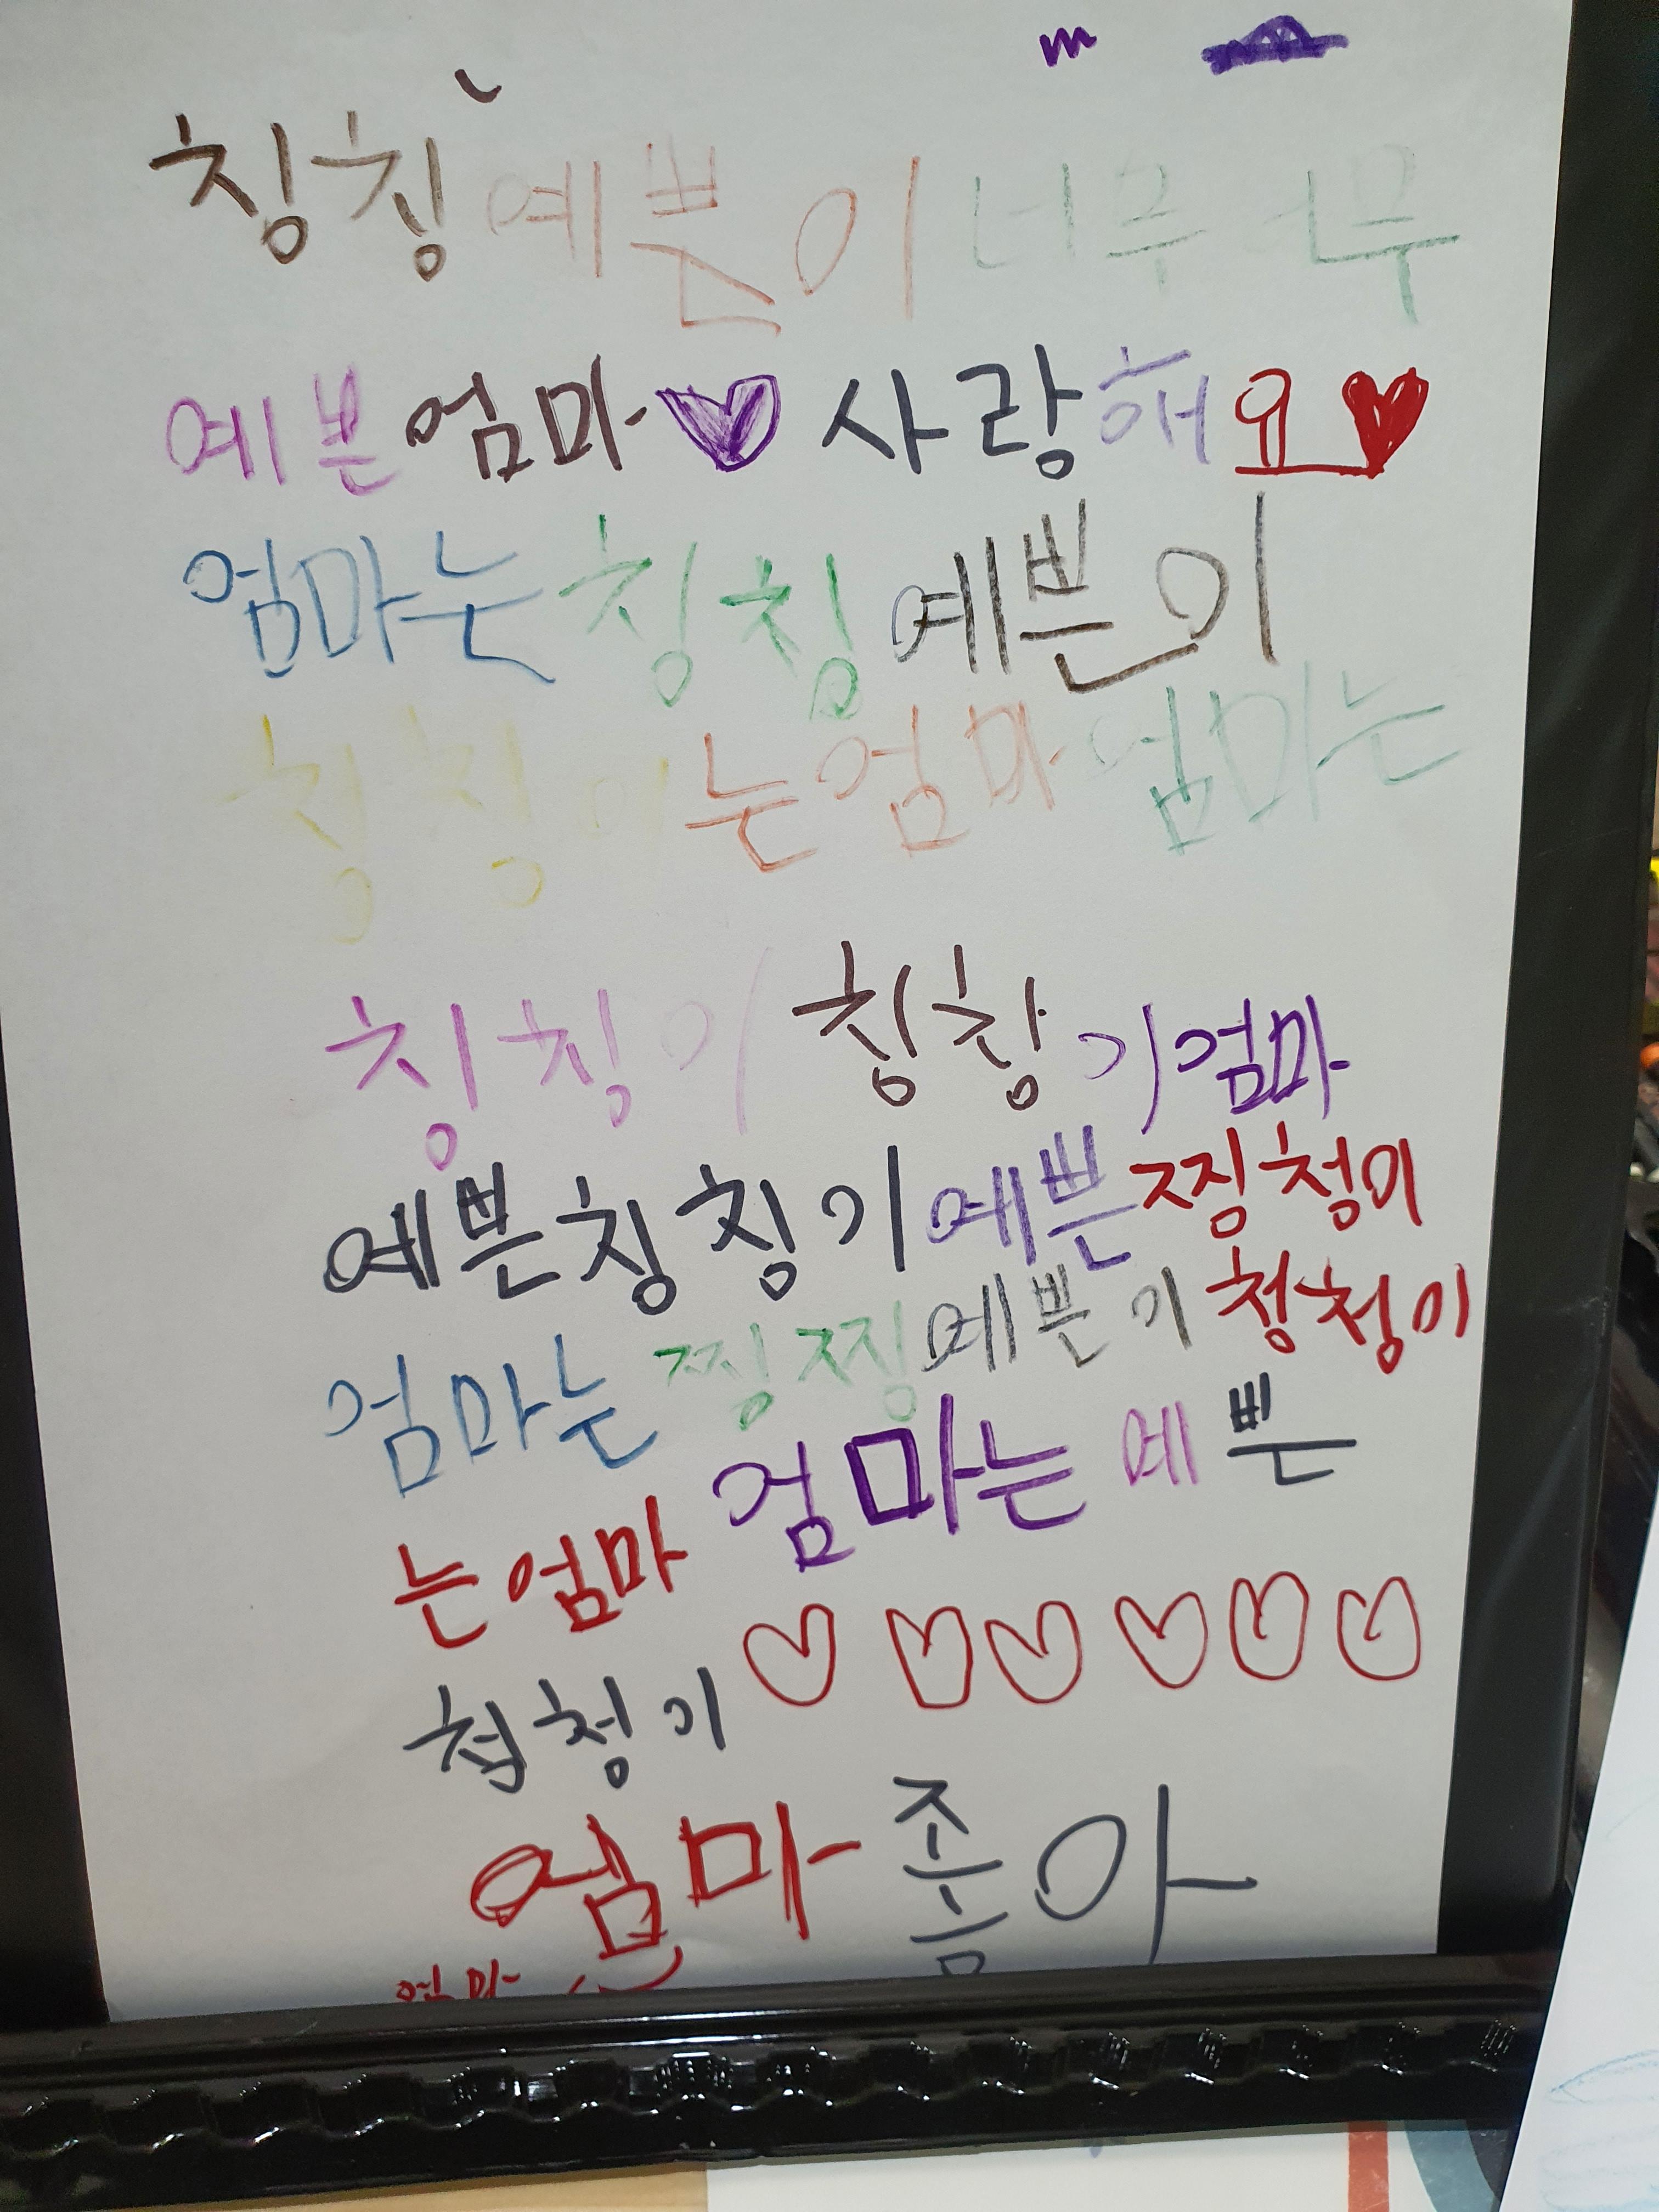 칭칭 예쁜이 너무 너무
예쁜 엄마 사랑해요
엄마는 칭칭 예쁜이
칭칭이는 엄마 엄마는
칭칭이 칭창이 엄마
예쁜 칭칭이 예쁜 찡청이
엄마는 찡찡 예쁜이 청청이
는 엄마 엄마는 예쁜
청이
엄마 좋아
엄마